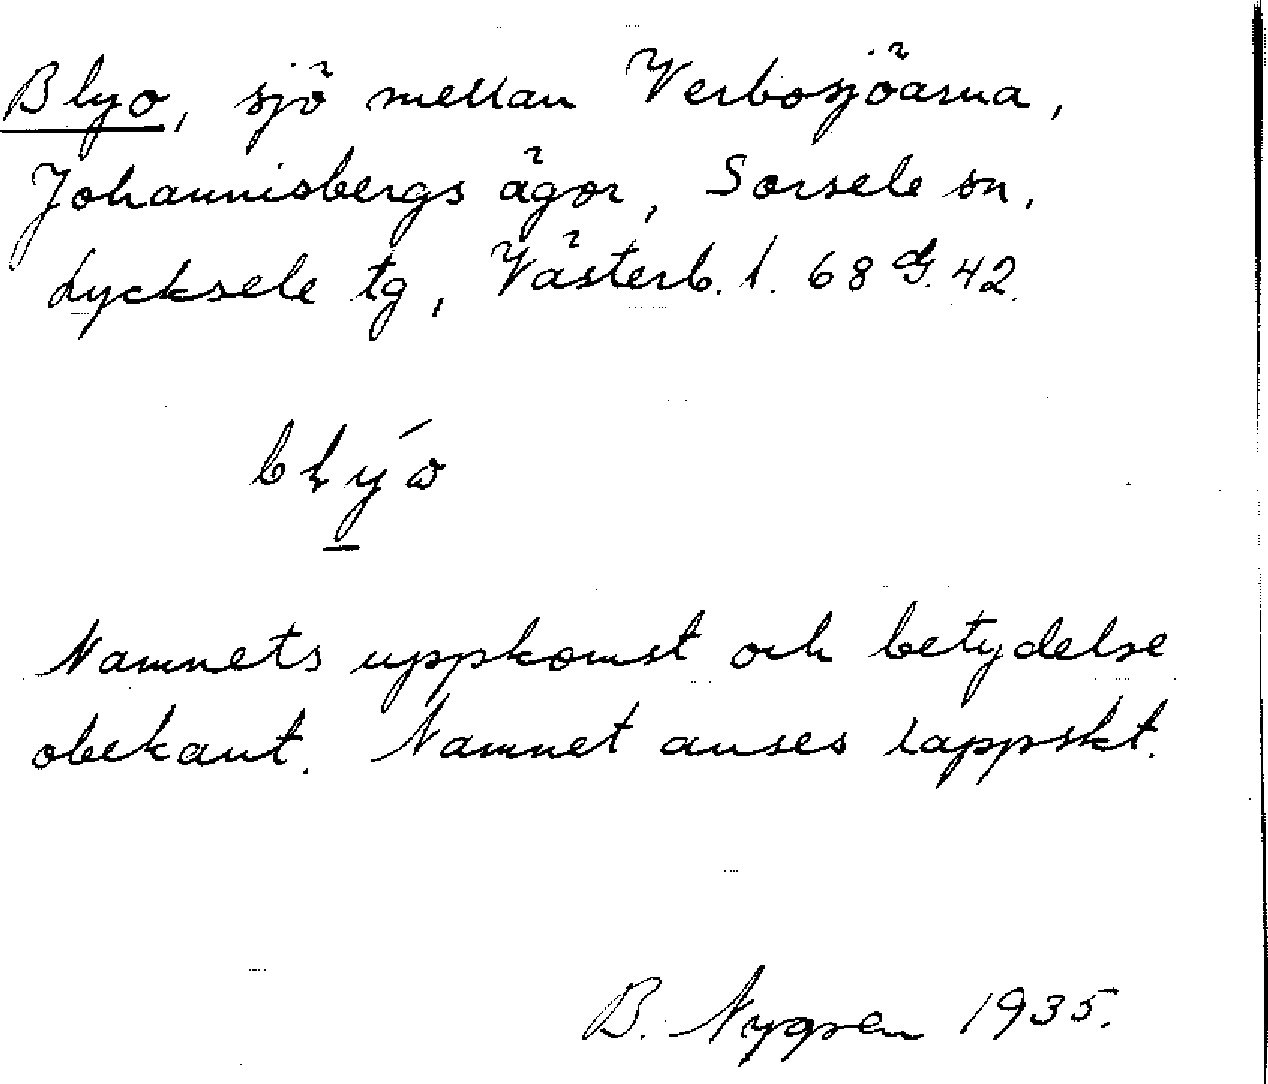 Blyo, sjö mellan Verbosjöarna,
Johannisbergs ägor, Sorsele sn,
Lycksele tg, Västerb. l. 68 G. 42.
blýo
Namnets uppkomst och betydelse
obekant. Namnet anses lappskt.
B. Nygren 1935.